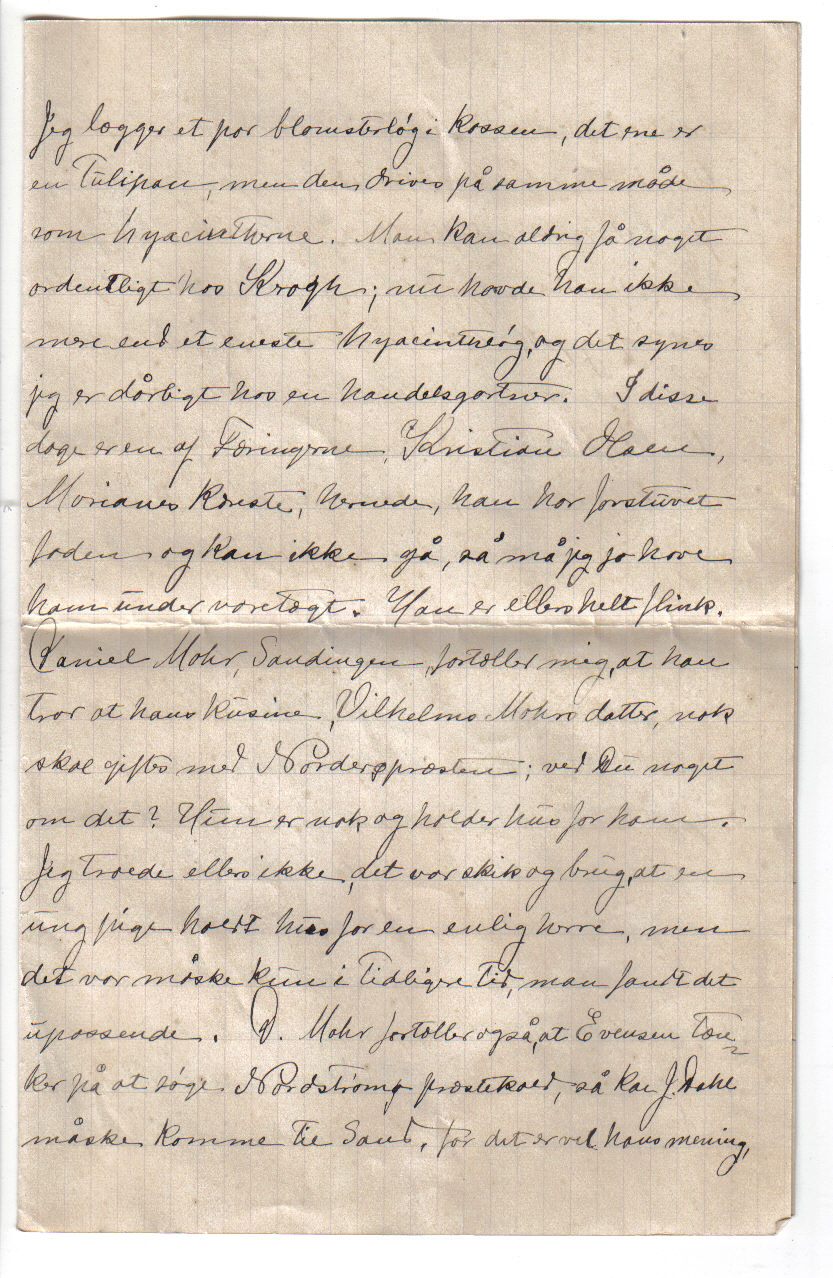 Jeg lægger et par blomsterløg i kassen, det ene er
en Tulipan, men den drives på samme måde
som hyacintherne. Man kan aldrig få noget
ordentligt hos Krogh; nu havde han ikke
mere end et eneste hyacinthløg, og det synes
jeg er dårligt hos en handelsgartner. I disse
dage er en af Færingerne, Kristian Olsen,
Marianes Kæreste, hernede, han har forstuvet
foden og kan ikke gå, så må jeg jo have
ham under varetægt. Han er ellers helt flink.
Daniel Mohr, Sandingen, fortæller mig, at han
tror at hans kusine, Vilhelms Mohrs datter, nok
skal giftes med Norderøpræsten; ved Du noget
om det? Hun er nok og holder hus for ham.
Jeg troede ellers ikke, det var skik og brug, at en
ung pige holdt hus for en enlig herre, men
det var måske kun i tidligere tid, man fandt det
upassende. D. Mohr fortæller også, at Evensen tæn=
ker på at søge Nordstrømø præstekald, så kan J. Dahl
måske komme til Sand, for det er vel hans mening,